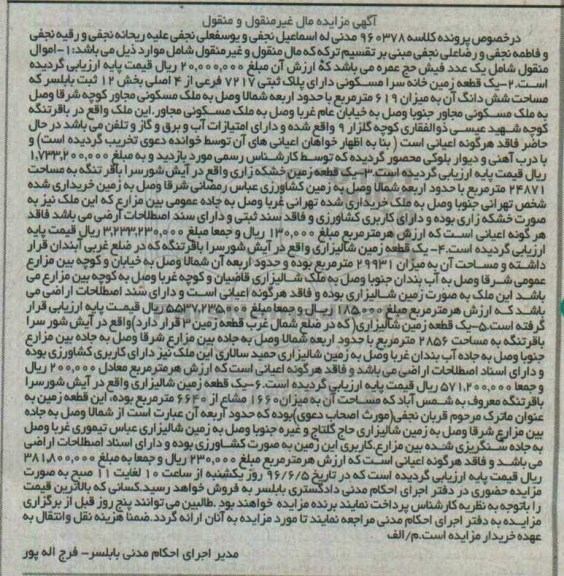 آگهی مزایده مال غیرمنقول و منقول
درخصوص پرونده کلاسه ۹۶۰۳۷۸ مدنی له اسماعیل نجفی و یوسفعلی نجفی علیه ریحانه نجفی و رقیه نجفی
و فاطمه نجفی و رضاعلی نجفی مبنی بر تقسیم ترکه که مال منقول و غیرمنقول شامل موارد ذیل می باشد:۱-اموال
منقول شامل یک عدد فیش حج عمره می باشد که ارزش آن مبلغ ۲۰,۰۰۰,۰۰۰ ریال قیمت پایه ارزیابی گردیده
است.۲-یک قطعه زمین خانه سرا مسکونی دارای پلاک ثبتی ۷۲۱۷ فرعی از ۴ اصلی بخش ۱۲ ثبت بابلسر که
مساحت شش دانگ آن به میزان ۶۱۹ مترمربع با حدود اربعه شمالا وصل به ملک مسکونی مجاور کوچه شرقا وصل
به ملک مسکونی مجاور جنوبا وصل به خیابان عام غربا وصل به ملک مسکونی مجاور.این ملک واقع در باقرتنگه
کوچه شهید عیسی ذوالفقاری کوچه گلزار ۹ واقع شده و دارای امتیازات آب و برق و گاز و تلفن می باشد در حال
حاضر فاقد هرگونه اعیانی است ( بنا به اظهار خواهان اعیانی های آن توسط خوانده دعوی تخریب گردیده است) و
با درب آهنی و دیوار بلوکی محصور گردیده که توسط کارشناس رسمی مورد بازدید و به مبلغ ۱,۷۳۳,۲۰۰,۰۰۰
ریال قیمت پایه ارزیابی گردیده است.۳-یک قطعه زمین خشکه زاری واقع در آیش شورسرا باقر تنگه به مساحت
۲۴۸۷۱ مترمربع با حدود اربعه شمالا وصل به زمین کشاورزی عباس رمضانی شرقا وصل به زمین خریداری شده
شخص تهرانی جنوبا وصل به ملک خریداری شده تهرانی غربا وصل به جاده عمومی بین مزارع که این ملک نیز به
صورت خشکه زاری بوده و دارای کاربری کشاورزی و فاقد سند ثبتی و دارای سند اصطلاحات ارضی می باشد فاقد
هر گونه اعیانی است که ارزش هرمترمربع مبلغ ۱۳۰,۰۰۰ ریال و جمعا مبلغ ۳,۲۳۳,۲۳۰,۰۰۰ ریال قیمت پایه
ارزیابی گردیده است.۴- یک قطعه زمین شالیزاری واقع در آیش شورسرا باقرتنگه که در ضلع غربی آبندان قرار
داشته و مساحت آن به میزان ۲۹۹۳۱ مترمربع بوده و حدود اربعه آن شمالا وصل به خیابان و کوچه بین مزارع
عمومی شرقا وصل به آب بندان جنوبا وصل به ملک شالیزاری قاضیان و کوچه غربا وصل به کوچه بین مزارع می
باشد این ملک به صورت زمین شالیزاری بوده و فاقد هرگونه اعیانی است و دارای سند اصطلاحات اراضی می
باشد که ارزش هرمترمربع مبلغ ۱۸۵۰۰۰ ریال و جمعا مبلغ ۵۵۳۷,۲۳۵,۰۰۰ ریال قیمت پایه ارزیابی قرار
گرفته است.۵-یک قطعه زمین شالیزاری( که در ضلع شمال غرب قطعه زمین ۳ قرار دارد)واقع در آیش شور سرا
باقرتنگه به مساحت ۲۸۵۶ مترمربع با حدود اربعه شمالا وصل به جاده بین مزارع شرقا وصل به جاده بین مزارع
جنوبا وصل به جاده آب بندان غربا وصل به زمین شالیزاری حمید سالاری این ملک نیز دارای کاربری کشاورزی بوده
و دارای اسناد اصطلاحات اراضی می باشد و فاقد هرگونه اعیانی است که ارزش هرمترمربع معادل ۲۰۰,۰۰۰ ریال
و جمعا ۵۷۱,۲۰۰,۰۰۰ ریال قیمت پایه ارزیابی گردیده است.۶-یک قطعه زمین شالیزاری واقع در آیش شورسرا
باقرتنگه معروف به شمس آباد که مساحت آن به میزان ۱۶۶۰ مشاع از ۶۶۴۰ مترمربع بوده، این قطعه زمین به
عنوان ماترک مرحوم قربان نجفی(مورث اصحاب دعوی)بوده که حدود اربعه آن عبارت است از شمالا وصل به جاده
بین مزارع شرقا وصل به زمین شالیزاری حاج گلتاج و غیره جنوبا وصل به زمین شالیزاری عباس تیموری غربا وصل
به جاده سنگریزی شده بین مزارع.کاربری این زمین به صورت کشاورزی بوده و دارای اسناد اصطلاحات اراضی
می باشد و فاقد هرگونه اعیانی است که ارزش هرمترمربع مبلغ ۲۳۰,۰۰۰ ریال و جمعا به مبلغ ۳۸۱,۸۰۰,۰۰۰
ریال قیمت پایه ارزیابی گردیده است که در تاریخ ۹۶/۶/۵ روز یکشنبه از ساعت ۱۰ لغایت ۱۱ صبح به صورت
مزایده حضوری در دفتر اجرای احکام مدنی دادگستری بابلسر به فروش خواهد رسید.کسانی که بالاترین قیمت
را باتوجه به نظریه کارشناس پرداخت نمایند برنده مزایده خواهند بود .طالبین می توانند پنج روز قبل از برگزاری
مزایده به دفتر اجرای احکام مدنی مراجعه نمایند تا مورد مزایده به آنان ارائه گردد.ضمنا هزینه نقل وانتقال به
عهده خریدار مزایده است.م/الف
مدیر اجرای احکام مدنی بابلسر- فرج اله پور